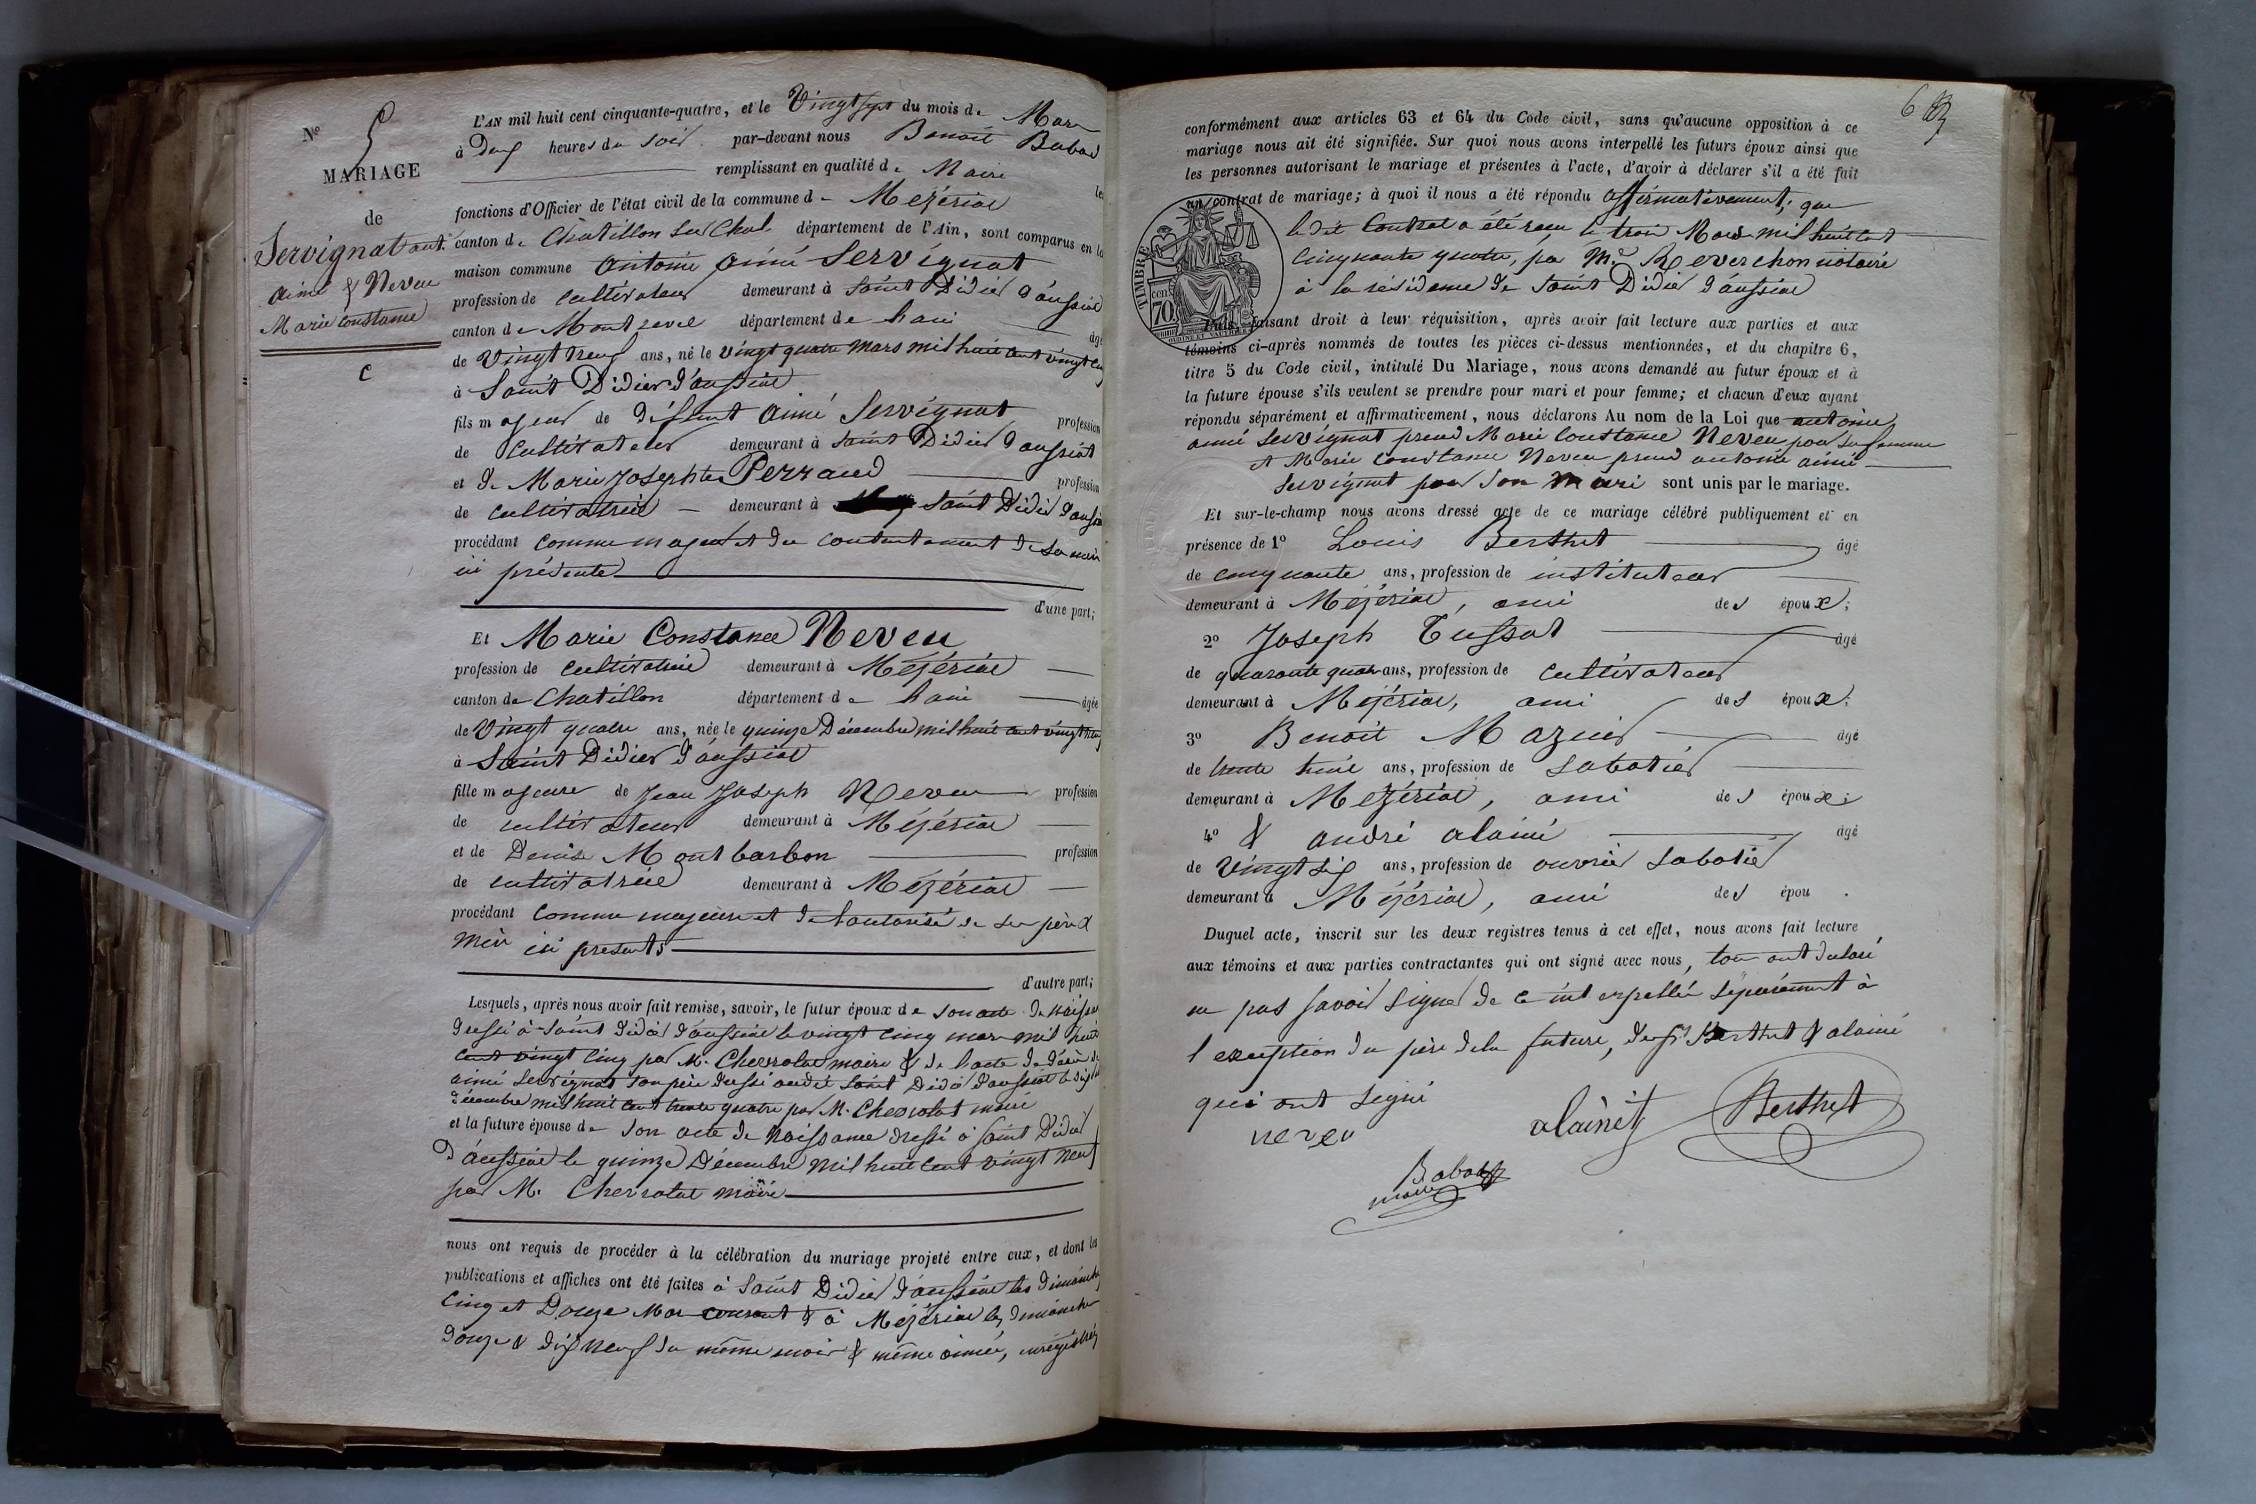 N° 5
MARIAGE
de
Servignat ant.
aimé & Neveu
Marie Constance
C
L'AN mil huit cent cinquante-quatre, et le Vingt sept du mois de Mars
à Deux heures du soir par-devant nous Benoit Babad
remplissant en qualité de Maire les
fonctions d'Officier de l'état civil de la commune de Mézériat
canton de Chatillon sur Chal. département de l'Ain, sont comparus en la
maison commune antoine aimé Servignat
profession de cultivateur demeurant à Saint Didier d'aussiat
canton de Montrevel département de l'ain âgé
de Vingt neuf ans, né le vingt quatre mars mil huit cent vingt cinq
à Saint Didier d'aussiat
fils majeur de défunt aimé Servignat profession
de cultivateur demeurant à Saint Didier d'aussiat
et de Marie Josephte Perraud profession
de cultivatrice demeurant à Saint Didier d'aussiat
procédant comme majeur et du consentement de sa mère
ici présente
d'une part;
Et Marie Constance Neveu
profession de cultivatrice demeurant à Mézériat
canton de Chatillon département de l'ain âgée
de Vingt quatre ans, née le quinze Décembre mil huit cent vingt neuf
à Saint Didier d'aussiat
fille majeure de Jean Joseph Neveu profession
de cultivateur demeurant à Mézériat
et de Denise Montbarbon profession
de cultivatrice demeurant à Mézériat
procédant comme majeure et de l'autorisé de ses père &
mère ici présents
d'autre part;
Lesquels, après nous avoir fait remise, savoir, le futur époux de son acte de naissance
dressé à Saint Didier d'aussiat le vingt cinq mars mil huit
cent vingt cinq par M. Chevrolat maire & de l'acte de décès de
aimé Servignat son père dressé audit Saint Didier d'aussiat le
décembre mil huit cent trente quatre par M. Chevrolat maire
et la future épouse de son acte de naissance dressé à Saint Didier
d'aussiat le quinze Décembre mil huit cent vingt neuf
par M. Chevrolat maire
nous ont requis de procéder à la célébration du mariage projeté entre eux, et dont les
publications et affiches ont été faites à Saint Didier d'aussiat les dimanches
Cinq et Douze Mars courant & à Mézériat les dimanches
douze & dix neuf du même mois & même année, enregistrées
conformément aux articles 63 et 64 du Code civil, sans qu'aucune opposition à ce
mariage nous ait été signifiée. Sur quoi nous avons interpellé les futurs époux ainsi que
les personnes autorisant le mariage et présentes à l'acte, d'avoir à déclarer s'il a été fait
un contrat de mariage; à quoi il nous a été répondu affirmativement, que
le dit Contrat a été reçu le trois Mars mil huit cent
Cinquante quatre, par Me Reverchon notaire
à la résidence de Saint Didier d'aussiat
TIMBRE
70 cent
Puis, faisant droit à leur réquisition, après avoir fait lecture aux parties et aux
témoins ci-après nommés de toutes les pièces ci-dessus mentionnées, et du chapitre 6,
titre 5 du Code civil, intitulé Du Mariage, nous avons demandé au futur époux et à
la future épouse s'ils veulent se prendre pour mari et pour femme; et chacun d'eux ayant
répondu séparément et affirmativement, nous déclarons Au nom de la Loi que antoine
aimé Servignat prend Marie Constance Neveu pour sa femme
et Marie Constance Neveu prend antoine aimé
Servignat pour son mari sont unis par le mariage.
Et sur-le-champ nous avons dressé acte de ce mariage célébré publiquement et en
présence de 1° Louis Berthet âgé
de cinquante ans, profession de instituteur
demeurant à Mézériat, ami des époux;
2° Joseph Tussat âgé
de quarante quatre ans, profession de cultivateur
demeurant à Mézériat, ami des époux;
3° Benoit Mazuir âgé
de trente huit ans, profession de sabotier
demeurant à Mézériat, ami des époux;
4° & andré alainé âgé
de Vingt six ans, profession de ouvrier sabotier
demeurant à Mézériat, ami des épou .
Duquel acte, inscrit sur les deux registres tenus à cet effet, nous avons fait lecture
aux témoins et aux parties contractantes qui ont signé avec nous, tous ont déclaré
ne pas savoir signer de ce interpellés séparément à
l'exception du père de la future, des Srs Berthet & alainé
qui ont signé
neveu
alainé
Berthet
Babad
maire